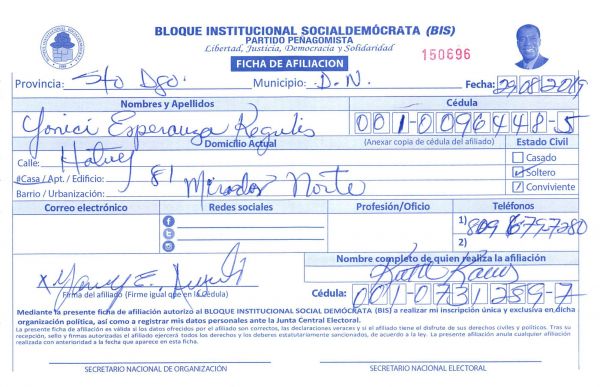 BLOQUE INSTITUCIONAL SOCIALDEMÓCRATA (BIS)
PARTIDO PEÑAGOMISTA
Libertad, Justicia, Democracia y Solidaridad
FICHA DE AFILIACION
150696
Provincia: Sto Dgo. Municipio: D.N. Fecha: 29/08/2019
Nombres y Apellidos Cédula
Esperanza 001-0096448-5
Domicilio Actual (Anexar copia de cédula del afiliado) Estado Civil
Calle: Hatuey
Casado
#Casa / Apt. / Edificio: 81
Soltero
Barrio / Urbanización: Mirador Norte
Conviviente
Correo electrónico Redes sociales Profesión/Oficio Teléfonos
1) 809 679-7280
2)
Nombre completo de quien realiza la afiliación
Firma del afiliado (Firme igual que en la Cédula)
Cédula: 001-0731259-7
Mediante la presente ficha de afiliación autorizo al BLOQUE INSTITUCIONAL SOCIAL DEMÓCRATA (BIS) a realizar mi inscripción única y exclusiva en dicha
organización política, así como a registrar mis datos personales ante la Junta Central Electoral.
La presente ficha de afiliación es válida si los datos ofrecidos por el afiliado son correctos, las declaraciones veraces y si el afiliado tiene el disfrute de sus derechos civiles y políticos. Tras su
recepción, sello y firmas autorizadas el afiliado ejercerá todos los derechos y los deberes estatutariamente sancionados, de acuerdo a la ley. La presente afiliación anula cualquier afiliación
realizada con anterioridad a la fecha que aparece en esta ficha.
SECRETARIO NACIONAL DE ORGANIZACIÓN SECRETARIO NACIONAL ELECTORAL